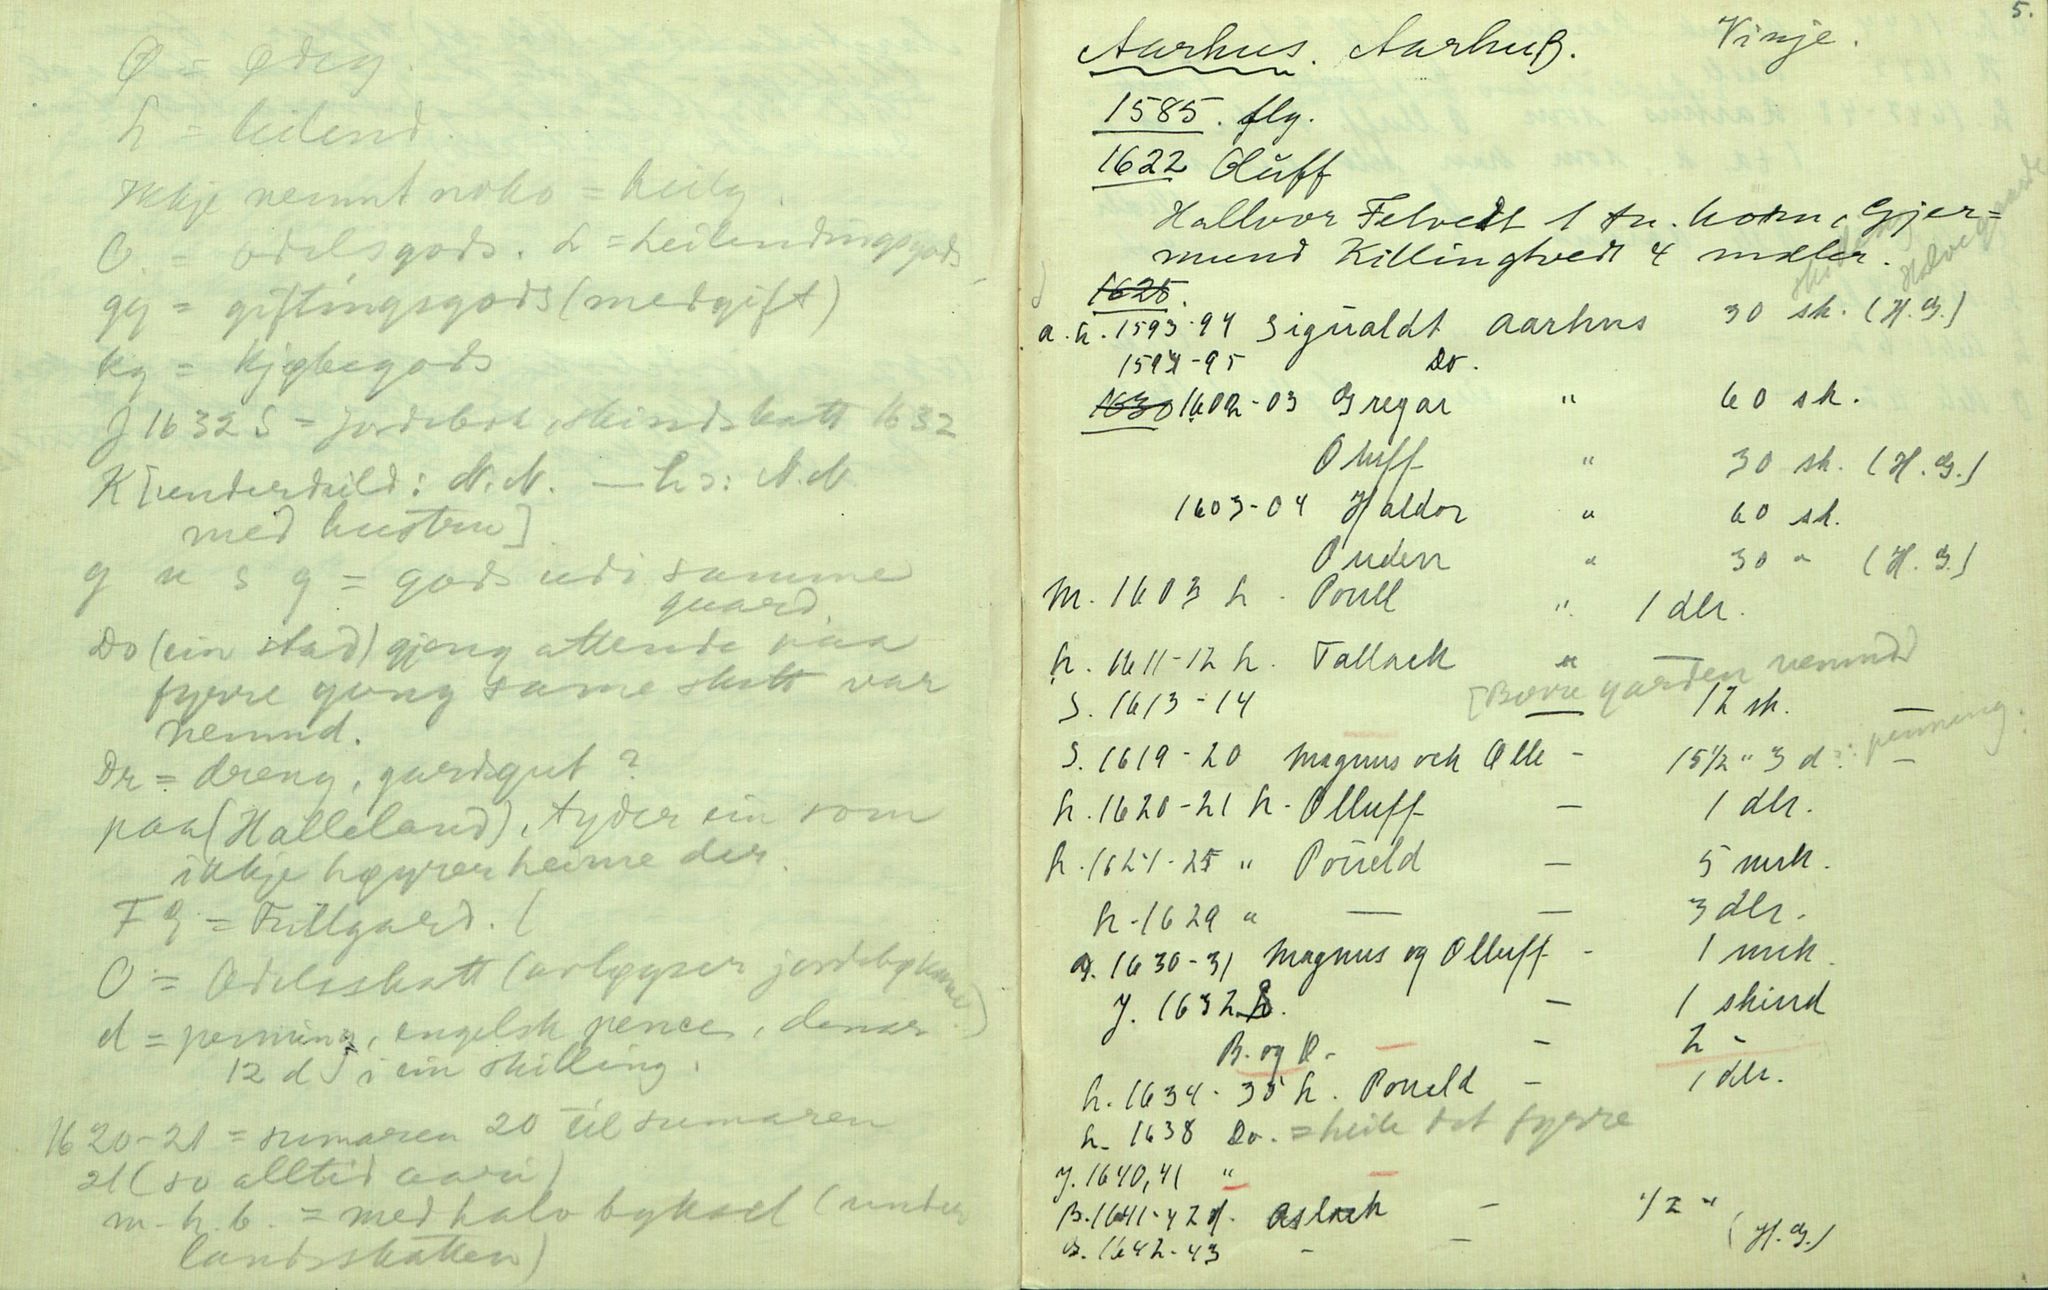 Ø = Ødeg.
L = leilend.
Ikkje nemnt noko = heilg.
O. = odelsgods. L = leilendingsgods
gg = giftingsgods (medgift)
kg = kjøbegods
J 1632 S = jordebok, skindskatt 1632
K [enderskild: N.N. — hs: N.N.
med hustru]
g u s g = gods udi samme
guard.
Do (ein stad) gjeng attende paa
fyrre gong same skatt var
nemnd.
Dr = dreng, gardgut?
paa (Halleland), tyder ein som
ikkje høyrer heime der.
F G = Fullgard. (
O = Odelsskatt (avløyser jordebøkane)
d = penning, engelsk pence, denar
12 d i ein skilling.
1620-21 = sumaren 20 til sumaren
21 (so alltid)
m. h. b. = med halv byksel (under
landsskatten)
5.
Aarhus. Aarhuß. Vinje.
1585. flg.
1622 Oluff
Hallvor Felvedt 1 tn. korn, Gjer=
mund Killingtvedt 4 mæler.
1625.
a. h. 1593-94 Sigualdt Aarhus 30 sk. (H.G.)
skilling Halvegaarde
1594-95 Do.
1630 1602-03 Gregar " 60 sk.
Oluff " 30 sk. (H.G.)
1603-04 Haldor " 60 sk.
Ouden " 30 " (H.G.)
M. 1603 h. Pouell " 1 dlr.
h. 1611-12 h. Tallack "
[Berre garden nemnd]
S. 1613-14 — 12 sk. —
S. 1619-20 Magnus och Olle - 15 1/2 " 3 d: penning. —
h. 1620-21 h. Olluff — 1 dlr.
h. 1624-25 " Poueld — 5 mrk.
h. 1629 " — — 3 dlr.
1630-31 Magnus og Olluff - 1 mrk.
J. 1632 S. — 1 skind
B. og O. — - 2 -
h. 1634-35 h. Poueld - 1 dlr.
h. 1638 Do. = heile det fyrre
J. 1640, 41 " —
B. 1641-42 Aslack - 1/2 "
1642-43 - — (H.G.)